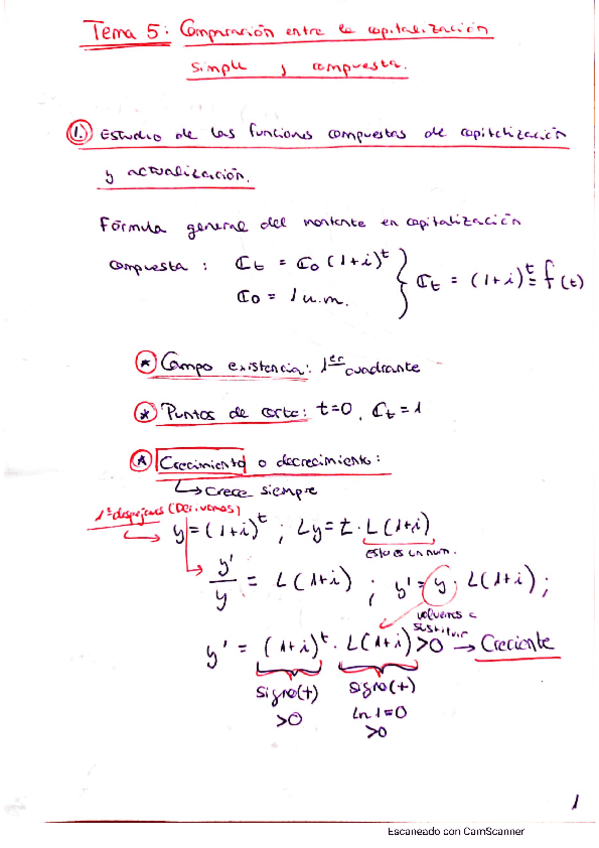 Tema 5: Comparación entre la capitalización
simple y compuesta.
1. Estudio de las funciones compuestas de capitalización
y actualización.
Fórmula general del montante en capitalización
compuesta : Ct = Co (1+i)^t } Ct = (1+i)^t = f(t)
Co = 1 u.m.
* Campo existencia: 1er cuadrante
* Puntos de corte: t=0, Ct=1
* Crecimiento o decrecimiento:
↳ Crece siempre
1º despejamos (Derivamos)
y=(1+i)^t ; Ly = t · L(1+i)
esto es un num.
y'/y = L(1+i) ; y' = y · L(1+i) ;
volvemos a
sustituir
y' = (1+i)^t · L(1+i) >0 → Creciente
Signo(+) signo(+)
>0 Ln 1=0
>0
1
Escaneado con CamScanner